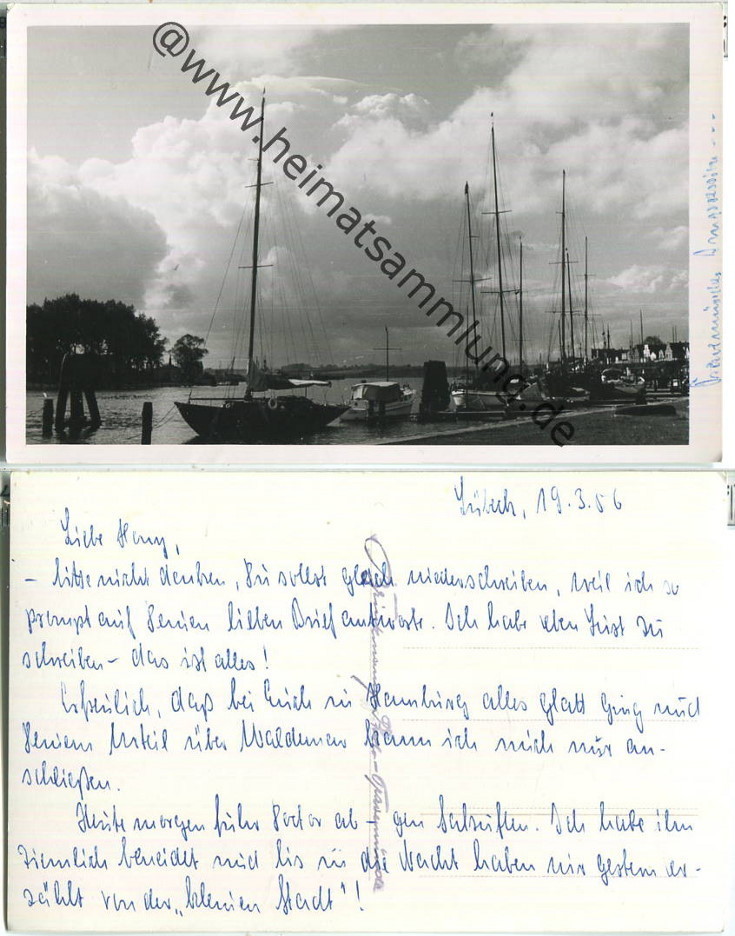 @www.heimatsammlung.de
Travemündes Impression ---
Lübeck, 19.3.56
Liebe Hanny,
- bitte nicht denken, Du sollst gleich niederschreiben, weil ich so
prompt auf Deinen lieben Brief antworte. Ich habe eben Lust zu
schreiben - das ist alles!
Erfreulich, daß bei Euch in Hamburg alles glatt ging und
Deinem Urteil über Waldemar kann ich mich nur an-
schließen.
Heute morgen fuhr ab - gen Salzuflen. Ich habe ihn
ziemlich beneidet und bis in die Nacht haben wir gestern er-
zählt von der „kleinen Stadt"!